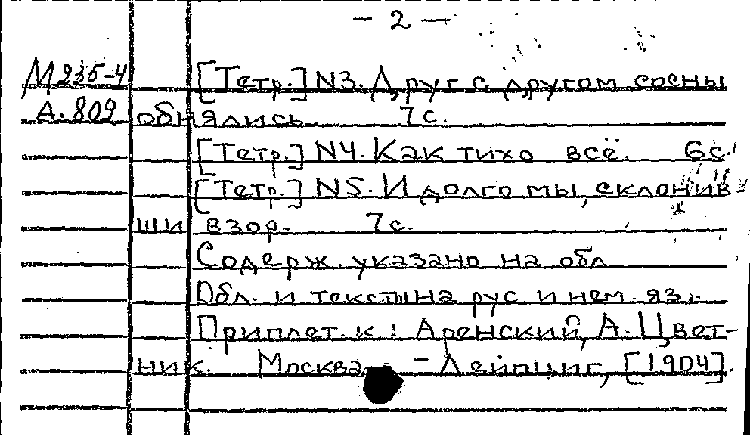 - 2 -
М235-4 [Тетр.] N3. Друг с другом сосны
А.809 обнялись. 7с.
[Тетр.] N4. Как тихо всё. 6с.
[Тетр.] N5. И долго мы, склонив-
ши взор. 7с.
Содерж. указано на обл.
Обл. и тексты на рус. и нем. яз.
Приплет. к: Аренский, А. Цвет-
ник. Москва - Лейпциг, [1904].